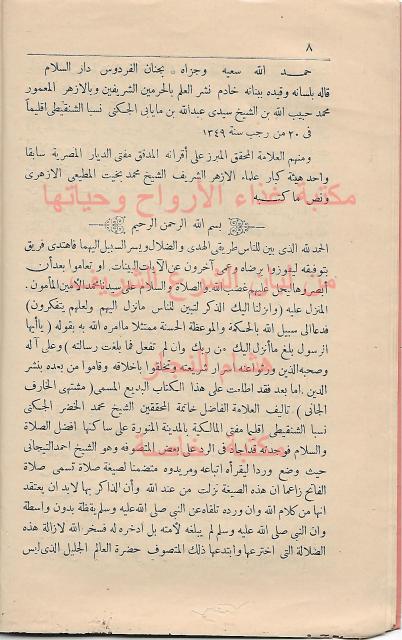 ٨
حمد الله سعيه وجزاه بجنان الفردوس دار السلام
قاله بلسانه وقيده ببنانه خادم نشر العلم بالحرمين الشريفين وبالازهر المعمور
محمد حبيب الله بن الشيخ سيدى عبدالله بن مايابى الجكنى نسبا الشنقيطى اقليماً
فى ٢٠ من رجب سنة ١٣٤٩
ومنهم العلامة المحقق المبرز على أقرانه المدقق مفتى الديار المصرية سابقا
واحد هيئة كبار علماء الازهر الشريف الشيخ محمد بخيت المطيعى الازهرى
ونص ما كتبه
مكتبة غذاء الأرواح وحياتها
بسم الله الرحمن الرحيم
الحمد لله الذى بين للناس طريقى الهدى والضلال ويسر السبيل اليهما فاهتدى فريق
بتوفيقه ليفوزوا برضاه وعمى آخرون عن الآيات البينات أو تعاموا بعد أن
أبصروها ليحل عليهم غضب الله والصلاة والسلام على سيدنا محمد الأمين المأمون
المنزل عليه (وانزلنا اليك الذكر لتبين للناس مانزل اليهم ولعلهم يتفكرون)
فدعا الى سبيل الله بالحكمة والموعظة الحسنة ممتثلا ما امره الله به بقوله (ياأيها
الرسول بلغ ماأنزل اليك من ربك وان لم تفعل فما بلغت رسالته) وعلى آله
هشام النجار
وصحبه الذين ورثوا عنه اسرار شريعته وتخلقوا باخلاقه وقاموا من بعده بنشر
الدين. اما بعد فقد اطلعت على هذا الكتاب البديع المسمى (مشتهى الخارف
الجانى) تأليف العلامة الفاضل خاتمة المحققين الشيخ محمد الخضر الجكنى
نسبا الشنقيطى اقليما مفتى المالكية بالمدينة المنورة على ساكنها افضل الصلاة
والسلام فوجدته قد اجاد فى الرد على بعض المتصوفه وهو الشيخ احمد التيجانى
مكتبة خاصة
حيث وضع وردا ليقرأه اتباعه ومريدوه متضمنا لصيغة صلاة تسمى صلاة
الفاتح زاعما ان هذه الصيغة نزلت من عند الله وأن الذاكر بها لابد ان يعتقد
انها من كلام الله وان ورده تلقاه عن النبى صلى الله عليه وسلم يقظة بدون واسطة
وان النبى صلى الله عليه وسلم لم يبلغه لأمته بل ادخره له فسخر الله لازالة هذه
الضلالة التى اخترعها وابتدعها ذلك المتصوف حضرة العالم الجليل الذى ليس